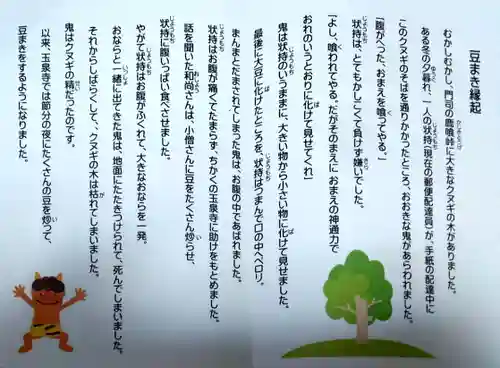 豆まき縁起
むかしむかし、門司の鹿喰峠に大きなクヌギの木がありました。
ある冬の夕暮れ、一人の状持(現在の郵便配達員)が、手紙の配達中に
このクヌギのそばを通りかかったところ、おおきな鬼があらわれました。
「腹がへった、おまえを喰ってやる。」
状持は、とてもかしこくて負けず嫌いでした。
「よし、喰われてやる。だがそのまえに、おまえの神通力で
おれのいうとおりに化けて見せてくれ」
鬼は状持のいうままに、大きい物から小さい物に化けて見せました。
最後に大豆に化けたところを、状持はつまんで口の中へペロリ。
まんまとだまされてしまった鬼は、お腹の中であばれました。
状持はお腹が痛くてたまらず、ちかくの玉泉寺に助けをもとめました。
話を聞いた和尚さんは、小僧さんに豆をたくさん炒らせ、
状持に腹いっぱい食べさせました。
やがて状持はお腹がふくれて、大きなおならを一発。
おならと一緒に出てきた鬼は、地面にたたきつけられて、死んでしまいました。
それからしばらくして、クヌギの木は枯れてしまいました。
鬼はクヌギの精だったのです。
以来、玉泉寺では節分の夜にたくさんの豆を炒って、
豆まきをするようになりました。